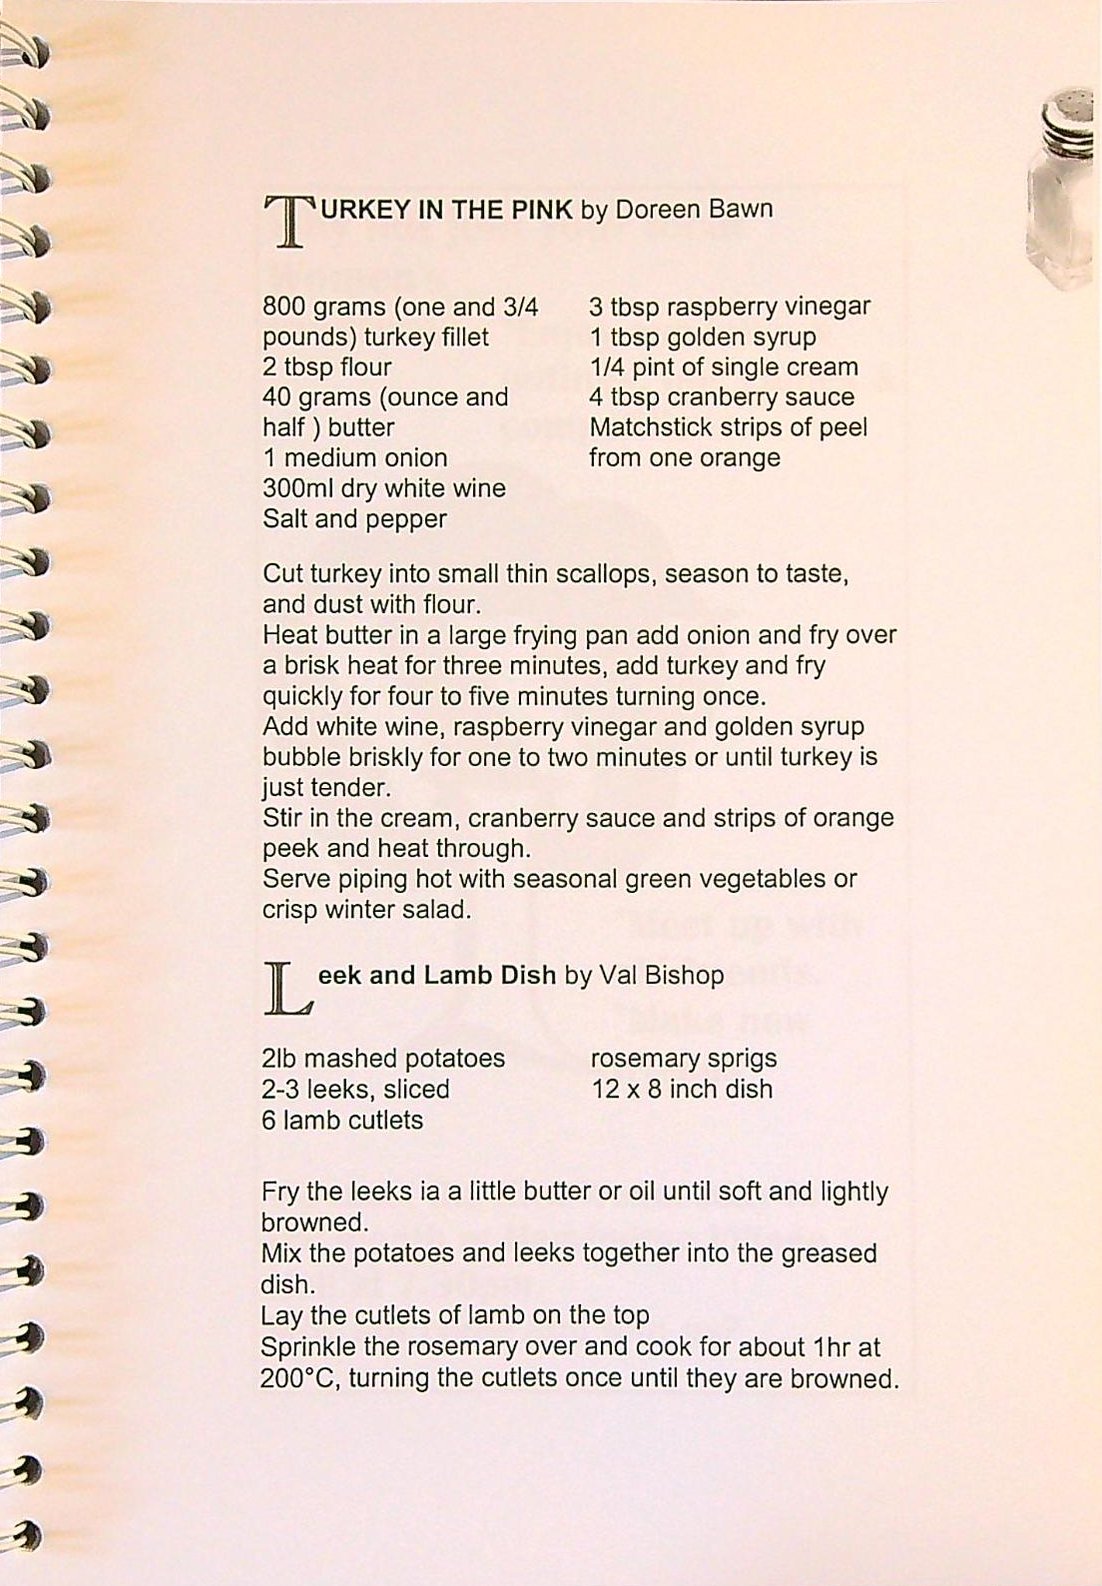 TURKEY IN THE PINK by Doreen Bawn
800 grams (one and 3/4
pounds) turkey fillet
2 tbsp flour
40 grams (ounce and
half ) butter
1 medium onion
300ml dry white wine
Salt and pepper
3 tbsp raspberry vinegar
1 tbsp golden syrup
1/4 pint of single cream
4 tbsp cranberry sauce
Matchstick strips of peel
from one orange
Cut turkey into small thin scallops, season to taste,
and dust with flour.
Heat butter in a large frying pan add onion and fry over
a brisk heat for three minutes, add turkey and fry
quickly for four to five minutes turning once.
Add white wine, raspberry vinegar and golden syrup
bubble briskly for one to two minutes or until turkey is
just tender.
Stir in the cream, cranberry sauce and strips of orange
peek and heat through.
Serve piping hot with seasonal green vegetables or
crisp winter salad.
Leek and Lamb Dish by Val Bishop
2lb mashed potatoes
2-3 leeks, sliced
6 lamb cutlets
rosemary sprigs
12 x 8 inch dish
Fry the leeks ia a little butter or oil until soft and lightly
browned.
Mix the potatoes and leeks together into the greased
dish.
Lay the cutlets of lamb on the top
Sprinkle the rosemary over and cook for about 1hr at
200°C, turning the cutlets once until they are browned.